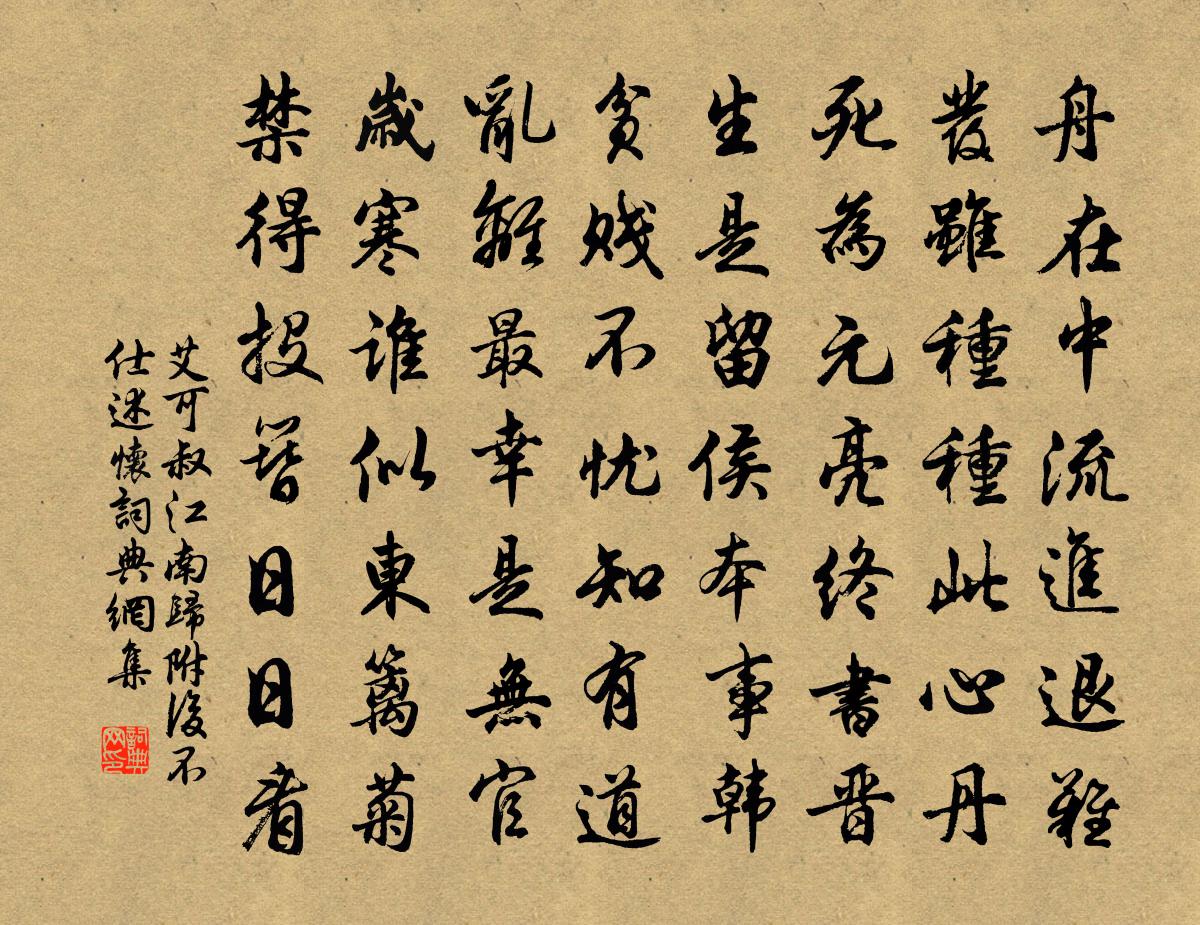 舟在中流進退難
發雖種種此心丹
死為元亮終書晋
生是留侯本事韓
貧賤不憂知有道
亂離最幸是無官
歲寒誰似東籬菊
禁得投簪日日看
艾可叔江南歸附後不
仕述懷詞典網集
詞典
网印